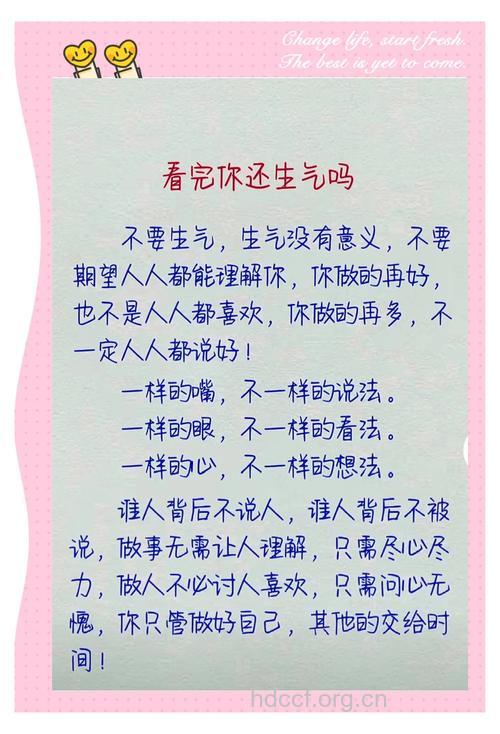 Change life, start fresh.
The best is yet to come.
看完你还生气吗
不要生气，生气没有意义，不要
期望人人都能理解你，你做的再好，
也不是人人都喜欢，你做的再多，不
一定人人都说好！
一样的嘴，不一样的说法。
一样的眼，不一样的看法。
一样的心，不一样的想法。
谁人背后不说人，谁人背后不被
说，做事无需让人理解，只需尽心尽
力，做人不必讨人喜欢，只需问心无
愧，你只管做好自己，其他的交给时
间！
hdccf.org.cn